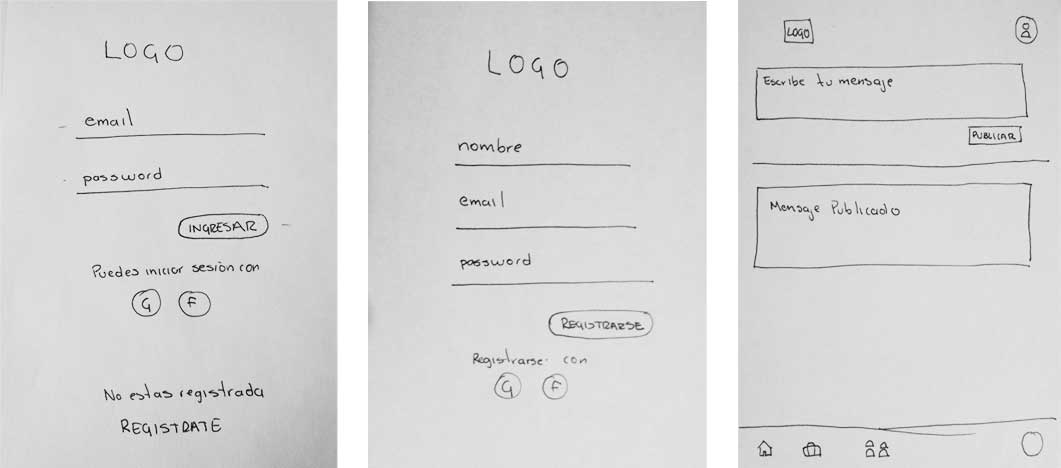 LOGO
email
password
INGRESAR
Puedes iniciar sesión con
G F
No estas registrada
REGISTRATE
LOGO
nombre
email
password
REGISTRARSE
Registrarse con
G F
LOGO
Escribe tu mensaje
PUBLICAR
Mensaje Publicado